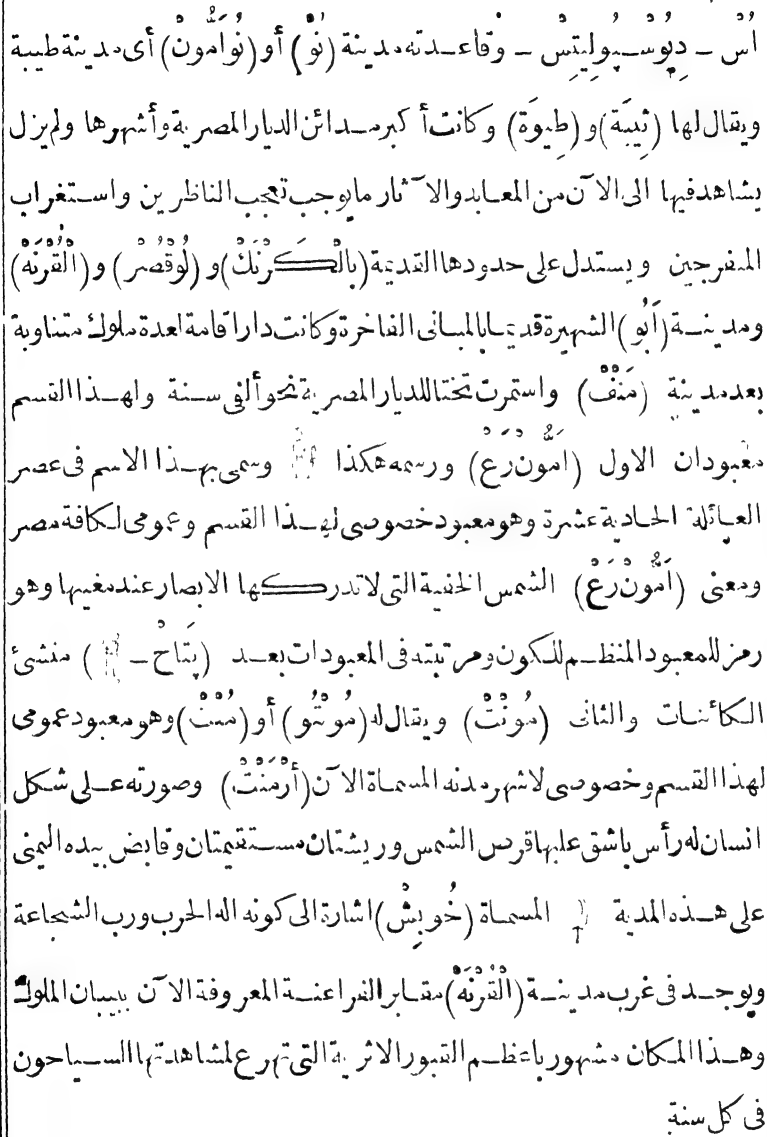 اُسْ – دِيُوسْـپُولِيتِسْ – وقاعدته مدينة (نُوْ) أو (نُوَأَمُّونْ) أى مدينة طيبة
ويقال لها (تِيبَة) و (طِيوَة) وكانت أكبر مدائن الديار المصرية وأشهرها ولم يزل
يشاهد فيها الى الآن من المعابد والآثار ما يوجب تعجب الناظرين واستغراب
المتفرجين ويستدل على حدودها القديمة (بالْكَرْنَكْ) و (لُوقْصُرْ) و (الْقُرْنَهْ)
ومدينة (أَبُو) الشهيرة قديما بالمبانى الفاخرة وكانت دار اقامة لعدة ملوك متناوبة
بعد مدينة (مَنْفْ) واستمرت تختا للديار المصرية نحو ألفى سنة ولهذا القسم
معبودان الاول (أَمُّونْ رَعْ) ورسمه هكذا وسمى بهذا الاسم فى عصر
العائلة الحادية عشرة وهو معبود خصوصى لهذا القسم وعمومى لكافة مصر
ومعنى (أَمُّونْ رَعْ) الشمس الخفية التى لا تدركها الابصار عند مغيبها وهو
رمز للمعبود المنظم للكون ومرتبته فى المعبودات بعد (پتَاحْ – ) منشئ
الكائنات والثانى (مُونْتْ) ويقال له (مُونْتُو) أو (مُنْتْ) وهو معبود عمومى
لهذا القسم وخصوصى لاشهر مدنه المسماة الآن (أَرْمَنْتْ) وصورته على شكل
انسان له رأس باشق عليها قرص الشمس وريشتان مستقيمتان وقابض بيده اليمنى
على هذه المدية المسماة (خُوبِشْ) اشارة الى كونه اله الحرب ورب الشجاعة
ويوجد فى غرب مدينة (الْقُرْنَهْ) مقابر الفراعنة المعروفة الآن ببيبان الملوك
وهذا المكان مشهور باعظم القبور الاثرية التى تهرع لمشاهدتها السياحون
فى كل سنة